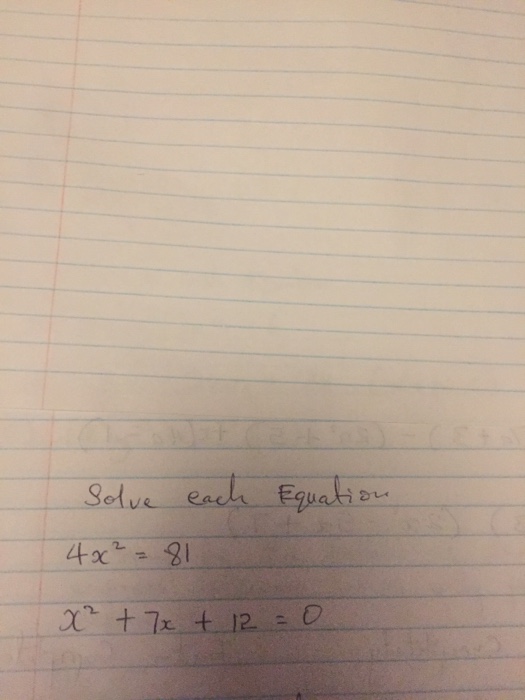 Solve each Equation
4x² = 81
x² + 7x + 12 = 0